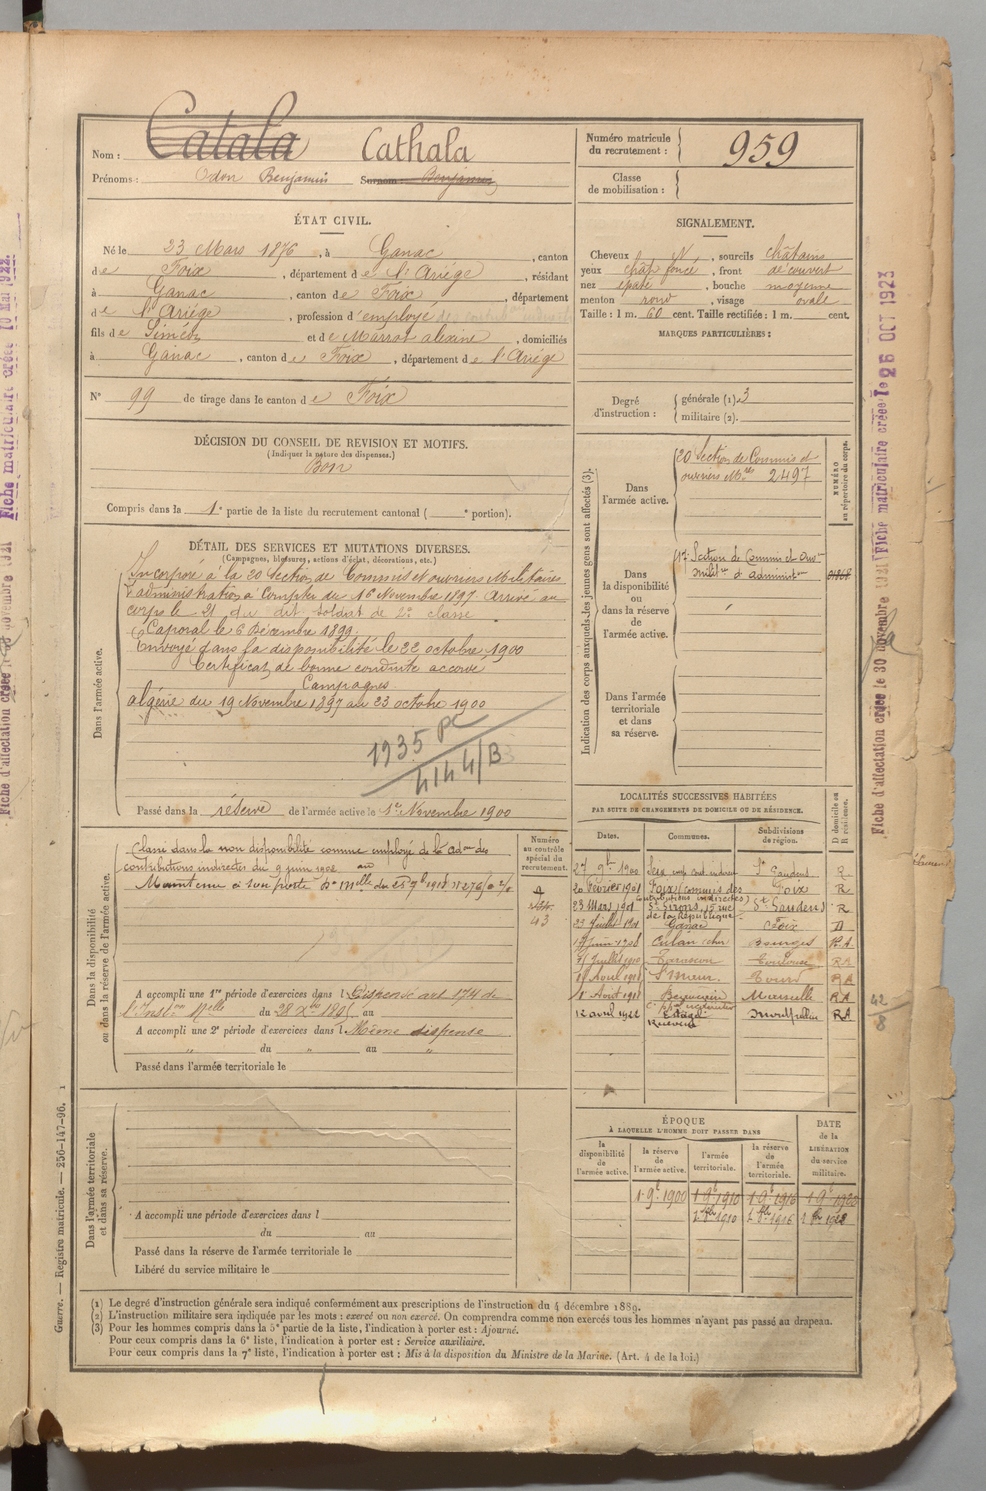 Nom : Catala Cathala
Prénoms : Odon Benjamin Surnom : Benjamin
Numéro matricule
du recrutement : 959
Classe
de mobilisation :
ÉTAT CIVIL.
Né le 23 Mars 1876, à Ganac, canton
de Foix, département de l'Ariège, résidant
à Ganac, canton de Foix, département
de l'Ariège, profession d'employé des contrib. indirectes
fils de Siméon et de Marrot alexine, domiciliés
à Ganac, canton de Foix, département de l'Ariège
N° 99 de tirage dans le canton de Foix
SIGNALEMENT.
Cheveux N, sourcils châtains
yeux chât foncé, front découvert
nez épaté, bouche moyenne
menton rond, visage ovale
Taille : 1 m. 60 cent. Taille rectifiée : 1 m. cent.
MARQUES PARTICULIÈRES :
Degré
d'instruction :
générale (1). 3
militaire (2).
DÉCISION DU CONSEIL DE REVISION ET MOTIFS.
(Indiquer la nature des dispenses.)
Bon
Compris dans la 1e partie de la liste du recrutement cantonal ( e portion).
DÉTAIL DES SERVICES ET MUTATIONS DIVERSES.
(Campagnes, blessures, actions d'éclat, décorations, etc.)
Dans l'armée active.
Incorporé à la 20 Section de Commis et ouvriers Militaires
d'administration à Compter du 16 Novembre 1897. Arrivé au
corps le 21 du dit soldat de 2e classe
Caporal le 6 Décembre 1899.
Envoyé dans la disponibilité le 22 octobre 1900
Certificat de bonne conduite accordé
Campagnes
algérie du 19 Novembre 1897 au 23 octobre 1900
1935 PC
4144/B
Passé dans la réserve de l'armée active le 1er Novembre 1900
Indication des corps auxquels les jeunes gens sont affectés (3).
NUMÉRO
au répertoire du corps.
Dans
l'armée active.
20 Section de Commis et
ouvriers Mres 2497
Dans
la disponibilité
ou
dans la réserve
de
l'armée active.
17e Section de Commis et Ouv
milit. d'administon
Dans l'armée
territoriale
et dans
sa réserve.
Dans la disponibilité
ou dans la réserve de l'armée active.
Numéro
au contrôle
spécial du
recrutement.
43
Classé dans la non disponibilité comme employé de la adon des
contributions indirectes du 9 juin 1902
Maintenu à son poste
A accompli une 1re période d'exercices dans l Dispensé art 174 de
l'Inston Mlle du 28 Xbre 1895 au
A accompli une 2e période d'exercices dans l Même dispense
" du " au "
Passé dans l'armée territoriale le
LOCALITÉS SUCCESSIVES HABITÉES
PAR SUITE DE CHANGEMENTS DE DOMICILE OU DE RÉSIDENCE.
Dates. Communes. Subdivisions
de région.
D domicile ou
R résidence.
27 9bre 1900 St Gaudens R
20 Février 1901 Foix (commis des Foix R
contributions indirectes)
23 Mars 1901 St Girons, 15 rue St Gaudens R
de la République
23 Juillet 1901 Ganac Foix D
Culan cher Bourges RA
Juillet 1910 Tarascon Toulouse RA
Tours RA
1er Août 1918 Marseille RA
12 avril 1922 Estagel RA
42
8
Dans l'armée territoriale
et dans sa réserve.
A accompli une période d'exercices dans l
du au
Passé dans la réserve de l'armée territoriale le
Libéré du service militaire le
ÉPOQUE
À LAQUELLE L'HOMME DOIT PASSER DANS
la
disponibilité
de
l'armée active.
la réserve
de
l'armée active.
l'armée
territoriale.
la réserve
de
l'armée
territoriale.
DATE
de la
LIBÉRATION
du service
militaire.
1 9e 1900 1 9e 1910 1 9e 1916 1 9e 1922
(1) Le degré d'instruction générale sera indiqué conformément aux prescriptions de l'instruction du 4 décembre 1889.
(2) L'instruction militaire sera indiquée par les mots : exercé ou non exercé. On comprendra comme non exercés tous les hommes n'ayant pas passé au drapeau.
(3) Pour les hommes compris dans la 5e partie de la liste, l'indication à porter est : Ajourné.
Pour ceux compris dans la 6e liste, l'indication à porter est : Service auxiliaire.
Pour ceux compris dans la 7e liste, l'indication à porter est : Mis à la disposition du Ministre de la Marine. (Art. 4 de la loi.)
Guerre. — Registre matricule. — 256-147-96.
Fiche matriculaire créée 10 Mai 1922.
Fiche d'affectation créée le 30 novembre 1921
Fiche matriculaire créée le 26 OCT 1923
Fiche d'affectation créée le 30 novembre 1921